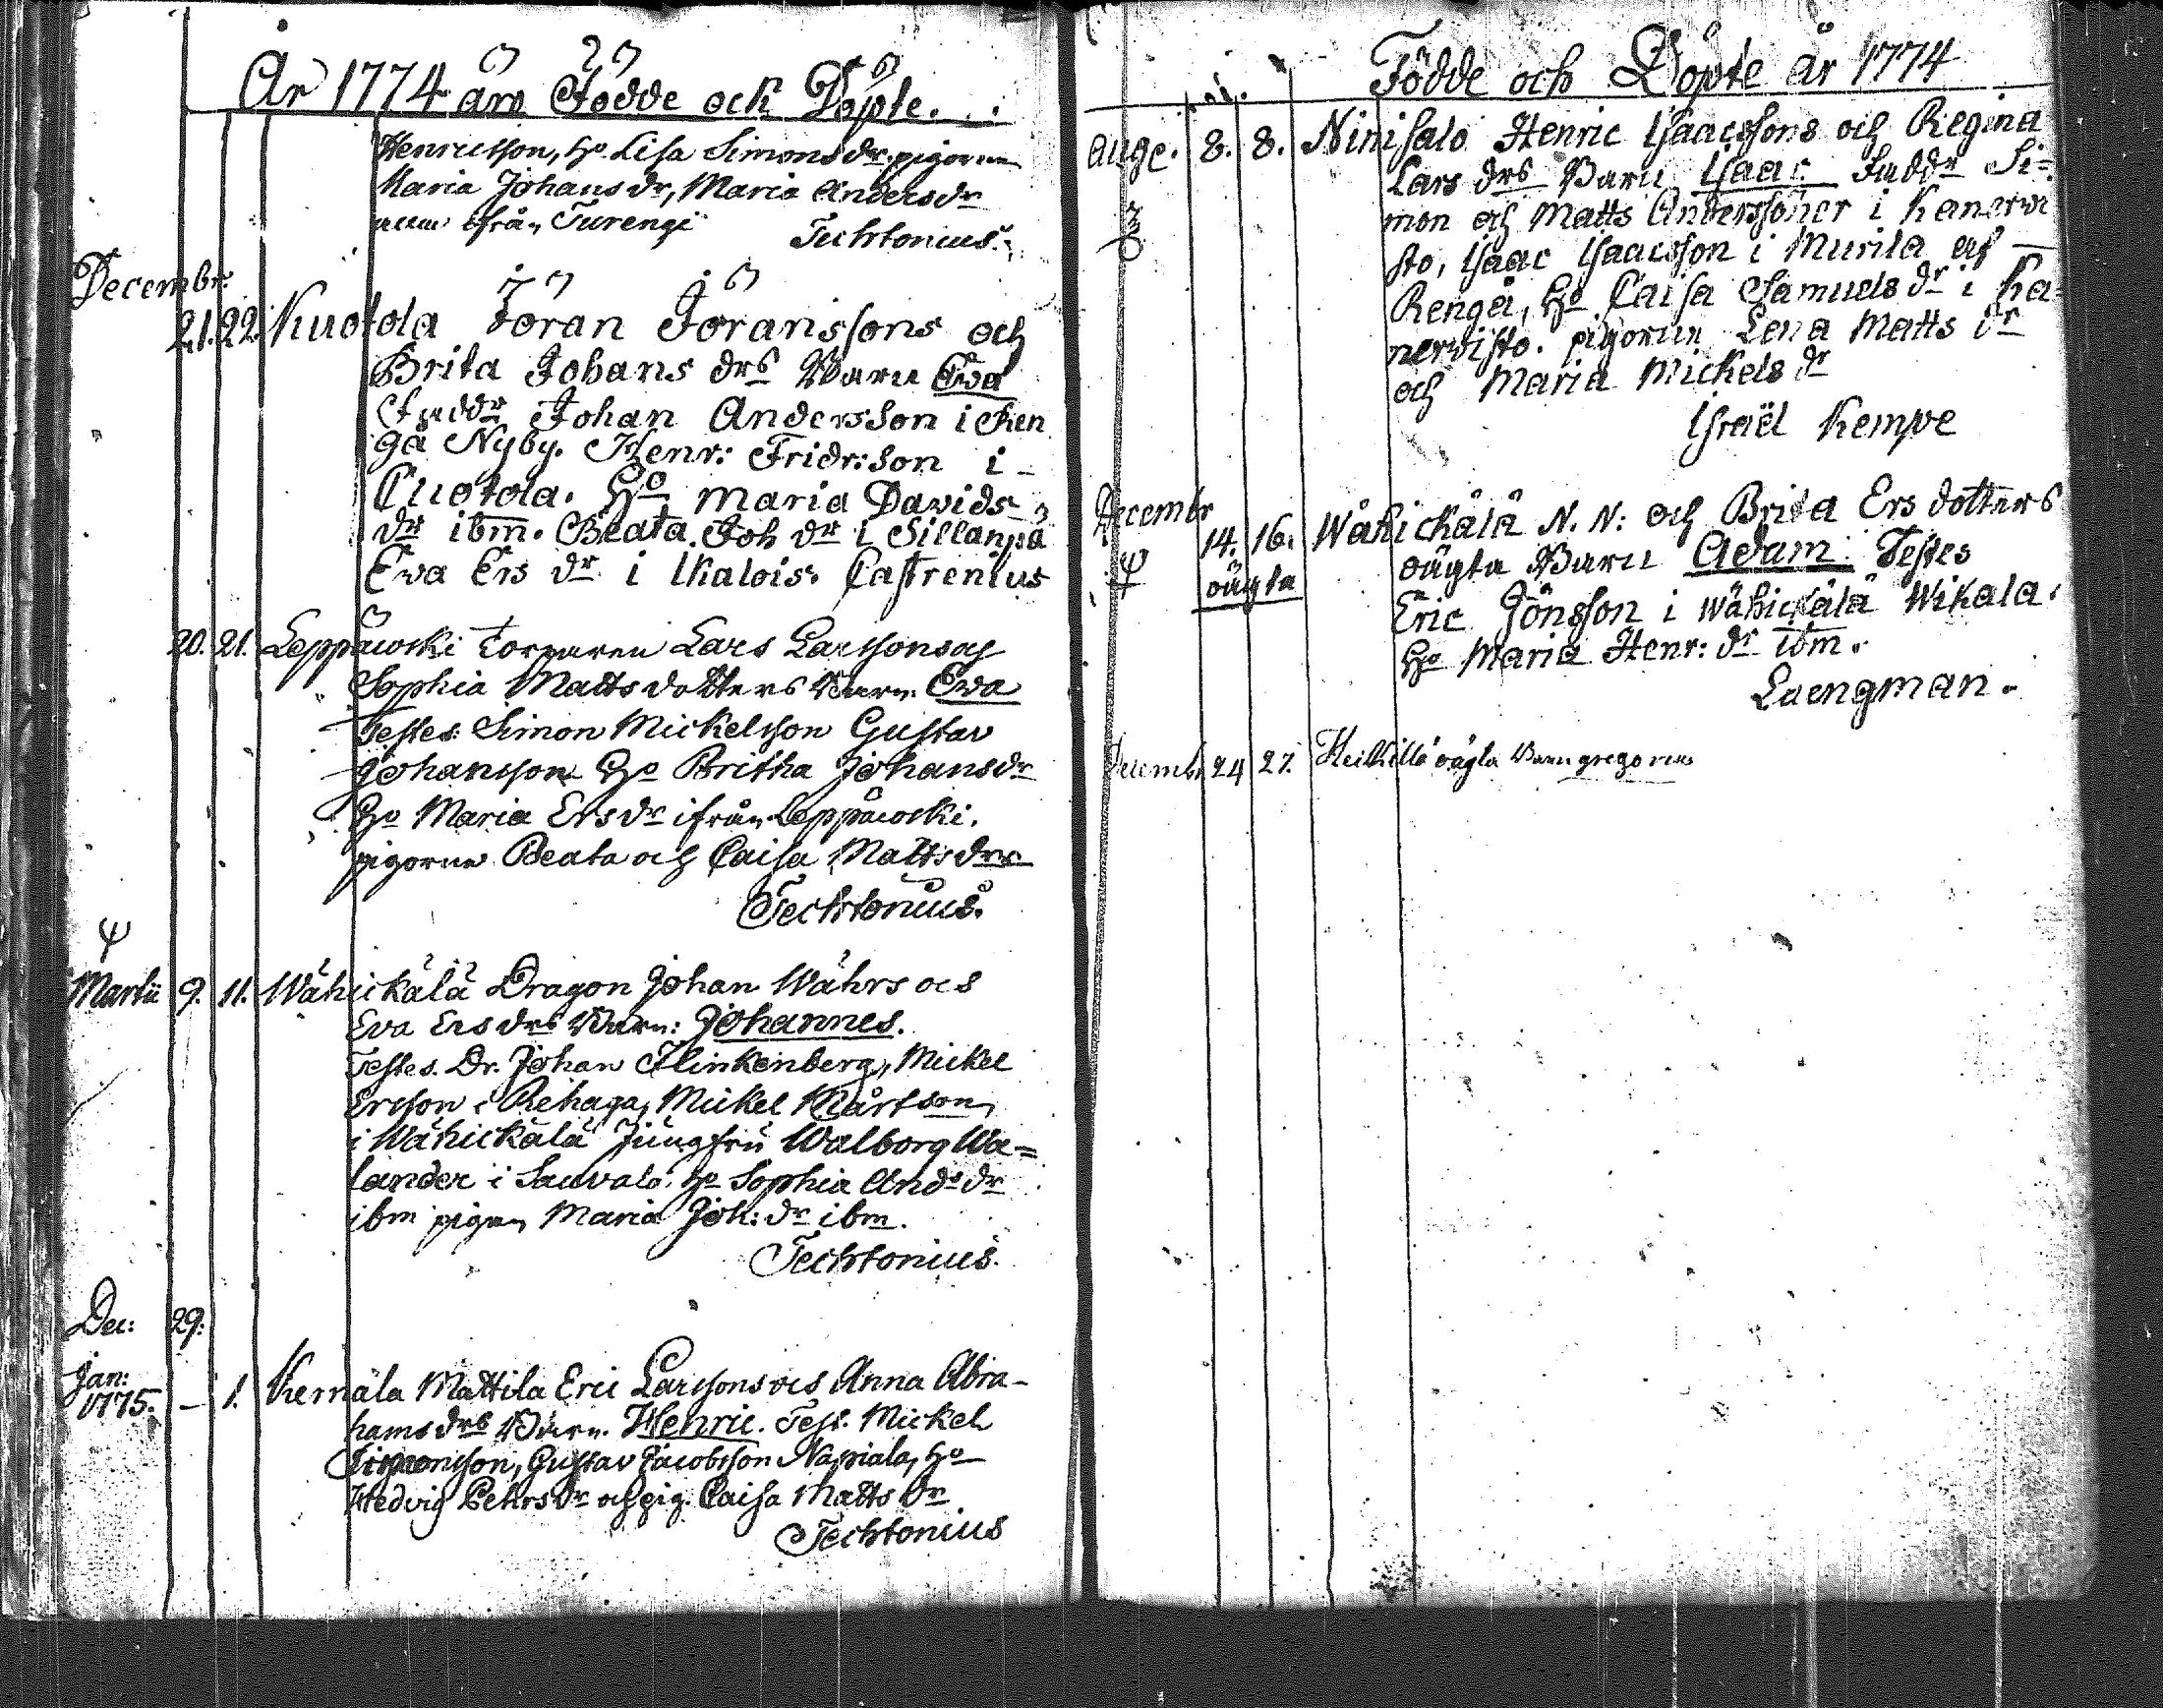 År 1774 äro Födde och Döpte.
Henricsson, ho. Lisa Simonsdr. pigorna
Maria Johansdr, Maria Andersdr
ifrån Turengi Techtonius.
Decembr.
21. 22. Kuotola Jöran Jöranssons och
Brita Johans drs Barn Ewa
Faddr Johan Andersson i Ren
gå Nyby. Henr: Fridr:son i
Cuotola. Ho Maria Davids
dr ibm. Beata Joh dr i Sillanpä
Ewa Ers dr i Ikalois. Castrenius
20. 21. Leppäkoski Torparen Lars Larssons och
Sophia Matts dotters Barn: Ewa
Testes: Simon Mickelsson Gustav
Johansson Ho Britha Johansdr
Ho Maria Ersdr ifrån Leppäkoski.
pigorna Beata och Caisa Matts drr
Techtonius.
Ψ
Martii 9. 11. Wähickälä Dragon Johan Währs och
Eva Ers drs Barn: Johannes.
Testes. Dr. Johan Klinkenberg, Mickel
Ersson i Rehaga, Mickel Mårtson
i Wähickälä Jungfru Walborg Wa=
lander i Sauvala. Ho Sophia Andsdr
ibm pigan Maria Joh: dr ibm.
Techtonius.
Dec: 29.
Jan:
1775. – 1. Kernäla Mattila Eric Larssons och Anna Abra-
hams drs Barn. Henric. Test. Mickel
Simonsson, Gustav Jacobsson Napiala, ho
Hedvig Pehrsdr och pig. Caisa Matts dr
Techtonius
Födde och Döpte år 1774
Auge. 8. 8. Ninisalo Henric Isaacssons och Regina
Lars drs Barn Isaac Faddr Si=
mon och Matts Anderssöner i Kanerwi
sto, Isaac Isaacsson i Murila af
Rengå, Ho Caisa Samuels dr i Ka
nerwisto. pigorna Lena Matts dr
och Maria Mickels dr
Israël Kempe
Decembr
14. 16. Wähickälä N. N: och Brita Ers dotters
Ψ oägta oägta Barn Adam. Testes
Eric Jönsson i Wähickälä Wikala.
Ho Maria Henr: dr ibm.
Laengman.
Decembr 24 27. Heikkilä oägta Barn gregorius